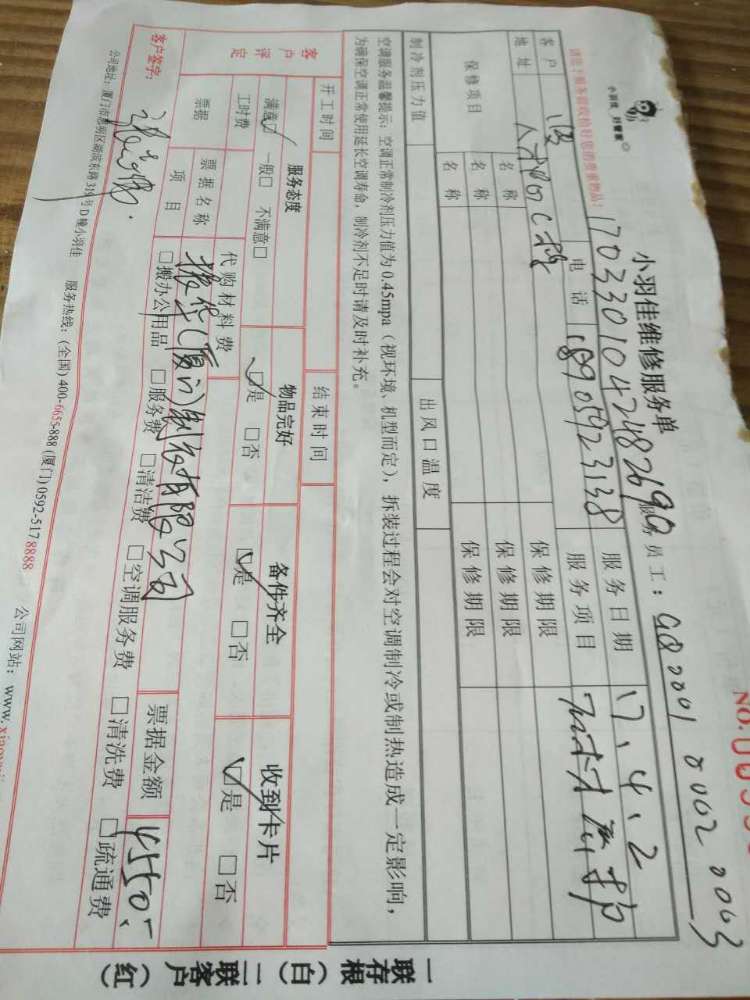 小羽佳 好管家
小羽佳维修服务单
NO.
请您于服务前收检好您的贵重物品!
1703301042482690
服务员工: GQ0001 0002 0003
客户
电话 18905923138
服务日期 17.4.2
地址
服务项目
保修项目
名称
保修期限
名称
保修期限
名称
保修期限
制冷剂压力值
出风口温度
空调服务温馨提示: 空调正常制冷剂压力值为0.45mpa (视环境、机型而定), 拆装过程会对空调制冷或制热造成一定影响,
为确保空调正常使用延长空调寿命, 制冷剂不足时请及时补充。
开工时间
结束时间
客户评定
服务态度
物品完好
备件齐全
收到卡片
满意☑ 一般□ 不满意□
☑是 □否
☑是 □否
☑是 □否
工时费
代购材料费
票据
票据名称
(厦门)制衣有限公司
票据金额 4550.-
项目
□搬办公用品 □服务费 □清洁费 □空调服务费 □清洗费 □疏通费
客户签字:
公司地址: 厦门市思明区湖滨东路319号D幢小羽佳 服务热线: (全国) 400-6655-888 (厦门) 0592-5178888 公司网站: www.xiaoyu
一联存根(白) 二联客户(红)